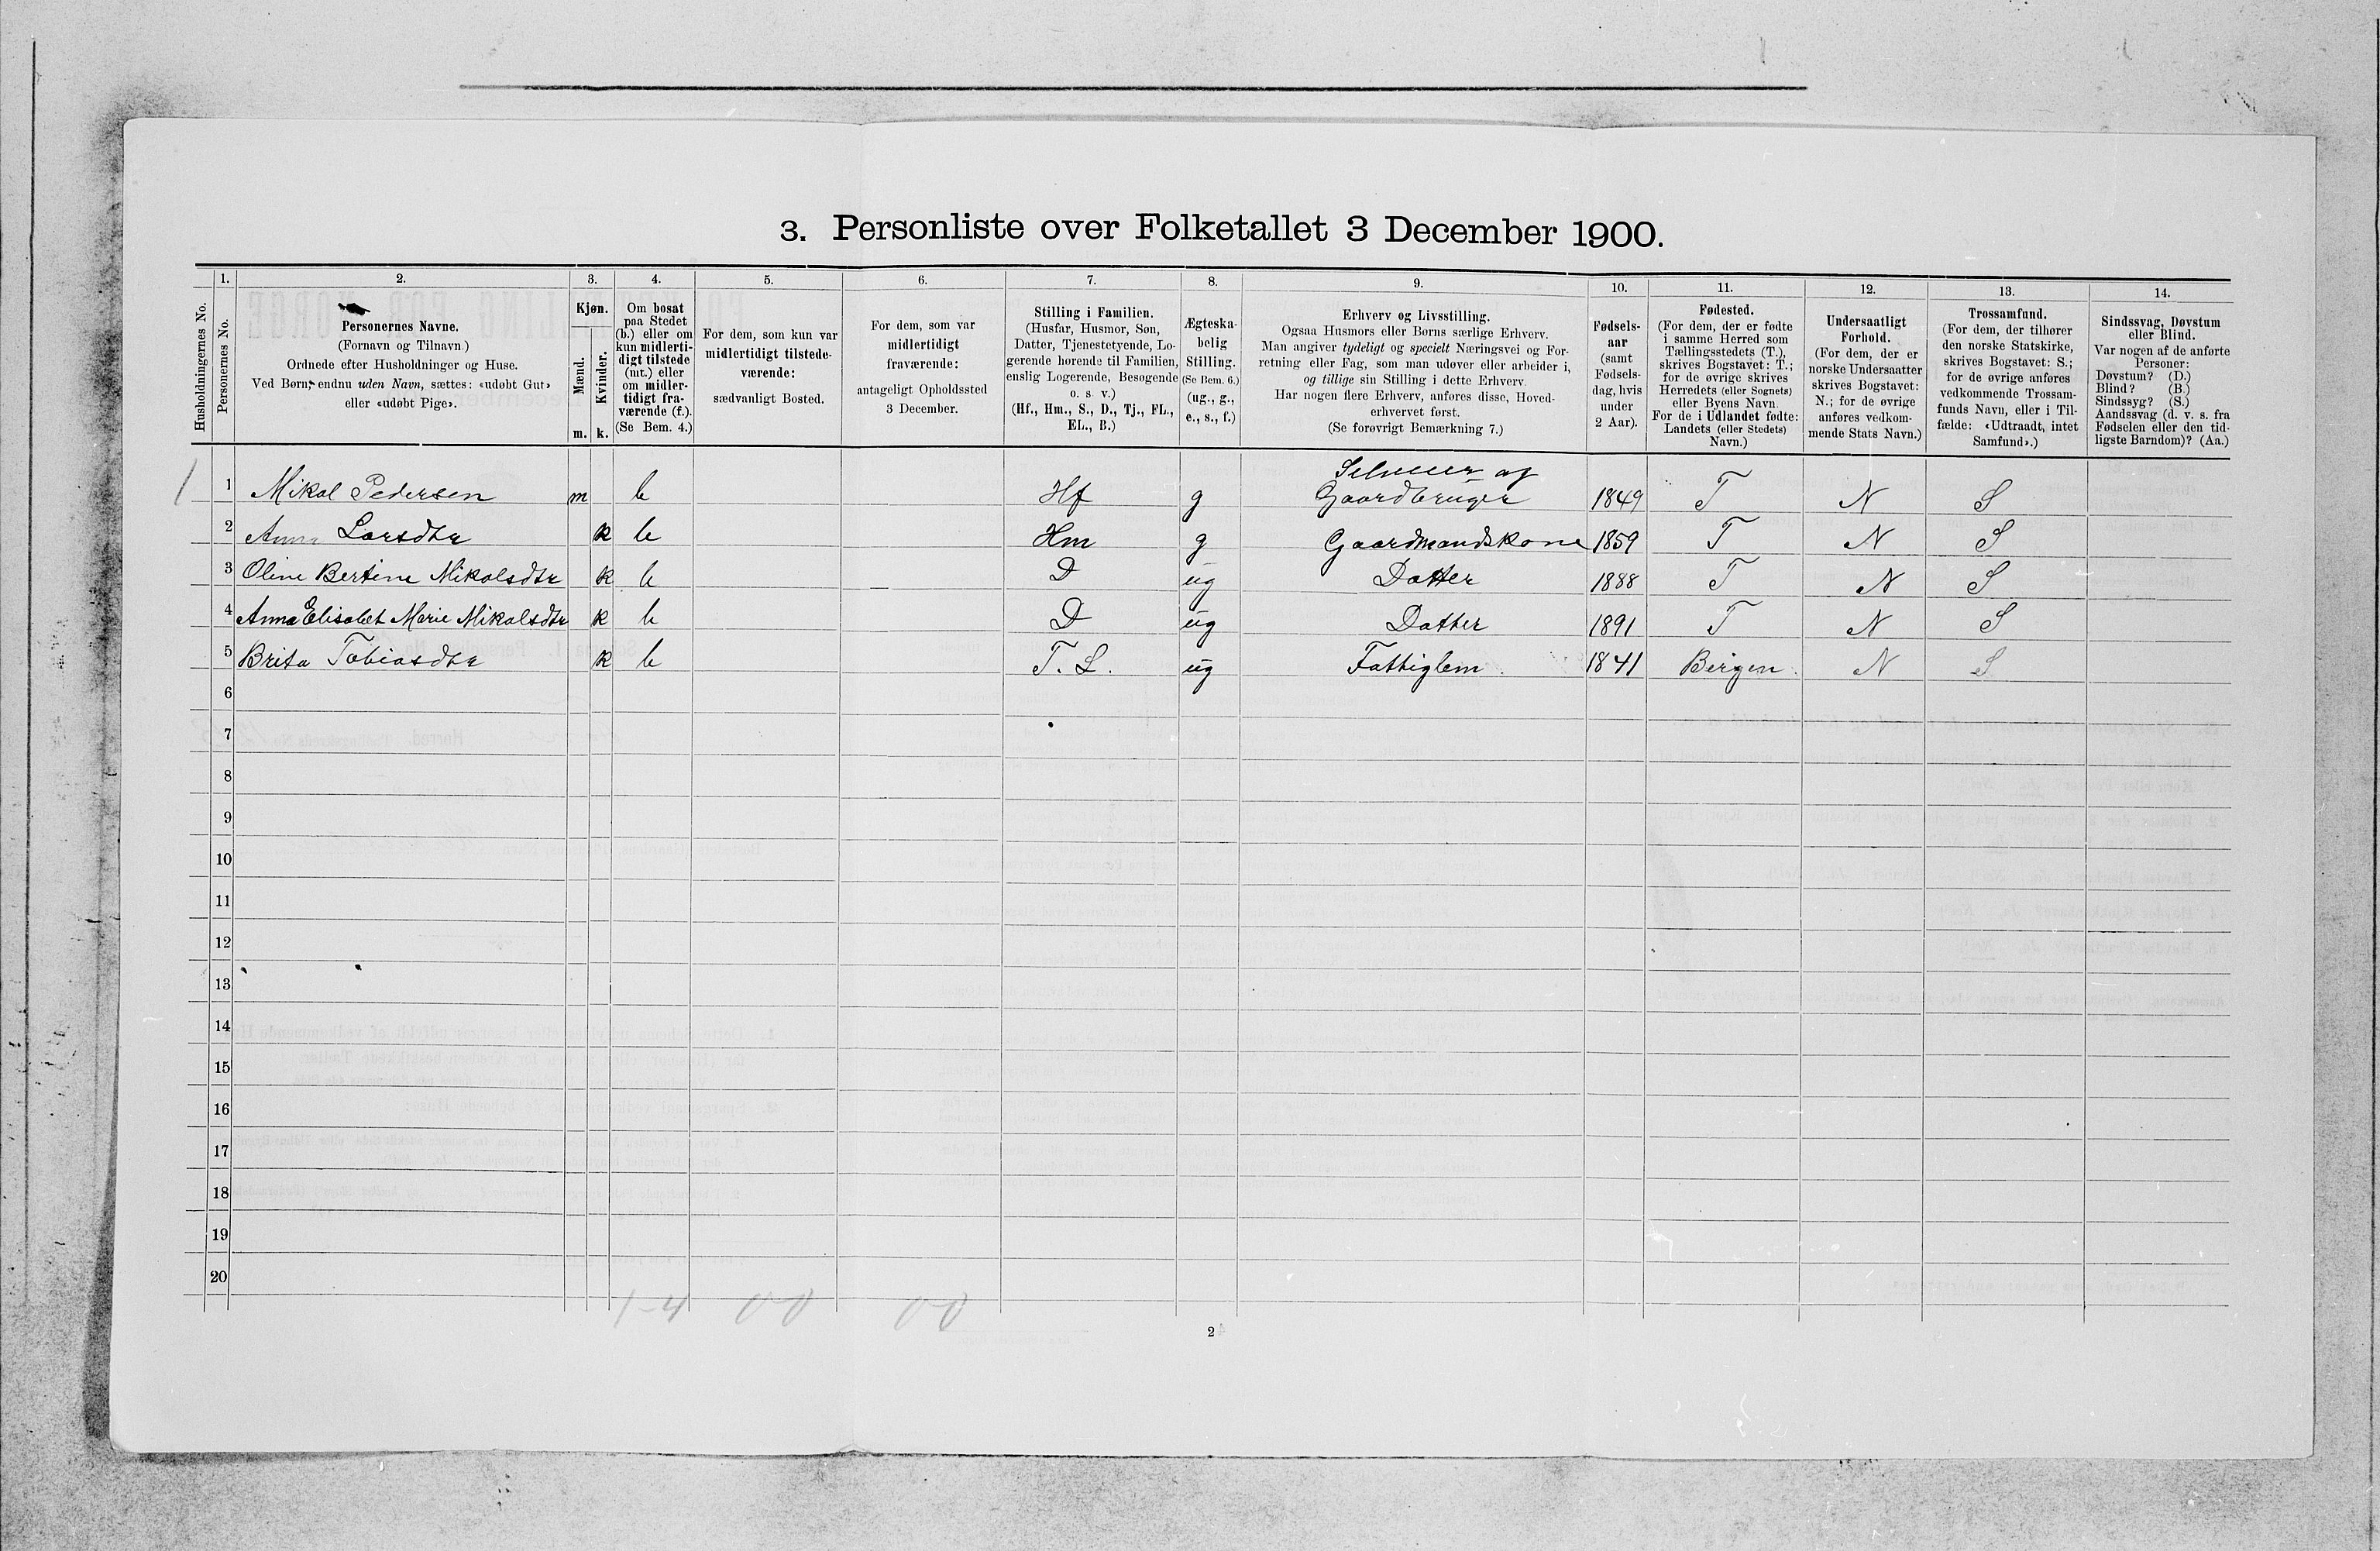 3. Personliste over Folketallet 3 December 1900.
Husholdningernes No.
1.
Personernes No.
2.
Personernes Navne.
(Fornavn og Tilnavn.)
Ordnede efter Husholdninger og Huse.
Ved Børn, endnu uden Navn, sættes: «udøbt Gut»
eller «udøbt Pige».
3.
Kjøn.
Mænd.
Kvinder.
m.
k.
4.
Om bosat
paa Stedet
(b.) eller om
kun midlerti-
digt tilstede
(mt.) eller
om midler-
tidigt fra-
værende (f.).
(Se Bem. 4.)
5.
For dem, som kun var
midlertidigt tilstede-
værende:
sædvanligt Bosted.
6.
For dem, som var
midlertidigt
fraværende:
antageligt Opholdssted
3 December.
7.
Stilling i Familien.
(Husfar, Husmor, Søn,
Datter, Tjenestetyende, Lo-
gerende hørende til Familien,
enslig Logerende, Besøgende
o. s. v.)
(Hf., Hm., S., D., Tj., FL.,
EL., B.)
8.
Ægteska-
belig
Stilling.
(Se Bem. 6.)
(ug., g.,
e., s., f.)
9.
Erhverv og Livsstilling.
Ogsaa Husmors eller Børns særlige Erhverv.
Man angiver tydeligt og specielt Næringsvei og For-
retning eller Fag, som man udøver eller arbeider i,
og tillige sin Stilling i dette Erhverv.
Har nogen flere Erhverv, anføres disse, Hoved-
erhvervet først.
(Se forøvrigt Bemærkning 7.)
10.
Fødsels-
aar
(samt
Fødsels-
dag, hvis
under
2 Aar).
11.
Fødested.
(For dem, der er fødte
i samme Herred som
Tællingsstedets (T.),
skrives Bogstavet: T.;
for de øvrige skrives
Herredets (eller Sognets)
eller Byens Navn.
For de i Udlandet fødte:
Landets (eller Stedets)
Navn.)
12.
Undersaatligt
Forhold.
(For dem, der er
norske Undersaatter
skrives Bogstavet:
N.; for de øvrige
anføres vedkom-
mende Stats Navn.)
13.
Trossamfund.
(For dem, der tilhører
den norske Statskirke,
skrives Bogstavet: S.;
for de øvrige anføres
vedkommende Trossam-
funds Navn, eller i Til-
fælde: «Udtraadt, intet
Samfund».)
14.
Sindssvag, Døvstum
eller Blind.
Var nogen af de anførte
Personer:
Døvstum? (D.)
Blind? (B.)
Sindssyg? (S.)
Aandssvag (d. v. s. fra
Fødselen eller den tid-
ligste Barndom)? (Aa.)
Selveier og
1 1 Mikal Pedersen m b Hf g Gaardbruger 1849 T N S
2 Anna Larsdtr k b Hm g Gaardmandskone 1859 T N S
3 Oline Bertine Mikalsdtr k b D ug Datter 1888 T N S
4 Anna Elisabet Marie Mikalsdtr k b D ug Datter 1891 T N S
5 Brita Tobiasdtr k b F. L. ug Fattiglem. 1841 Bergen. N S
6
7
8
9
10
11
12
13
14
15
16
17
18
19
20
1-4 0-0 0-0
2